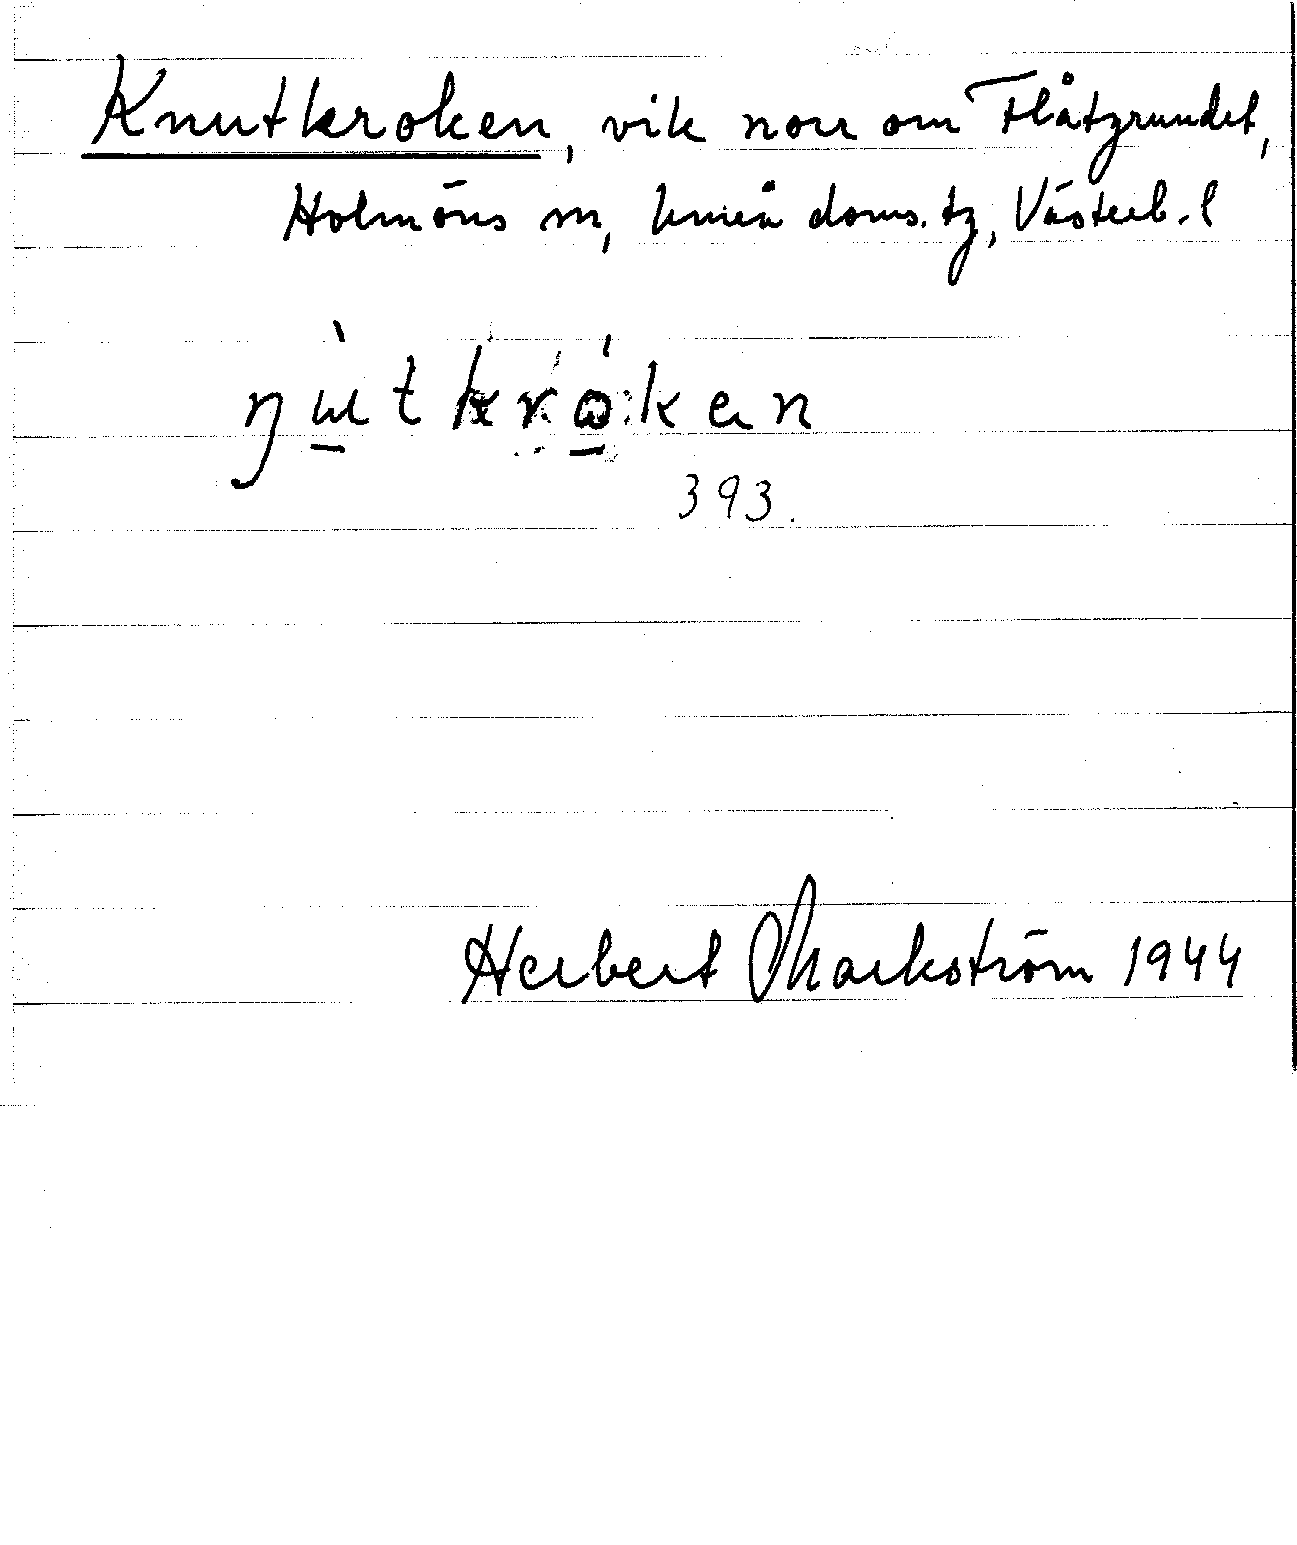 Knutkroken, vik norr om Flåtgrundet,
Holmöns sn, Umeå doms. tg, Västerb. l
393.
Herbert Markström 1944